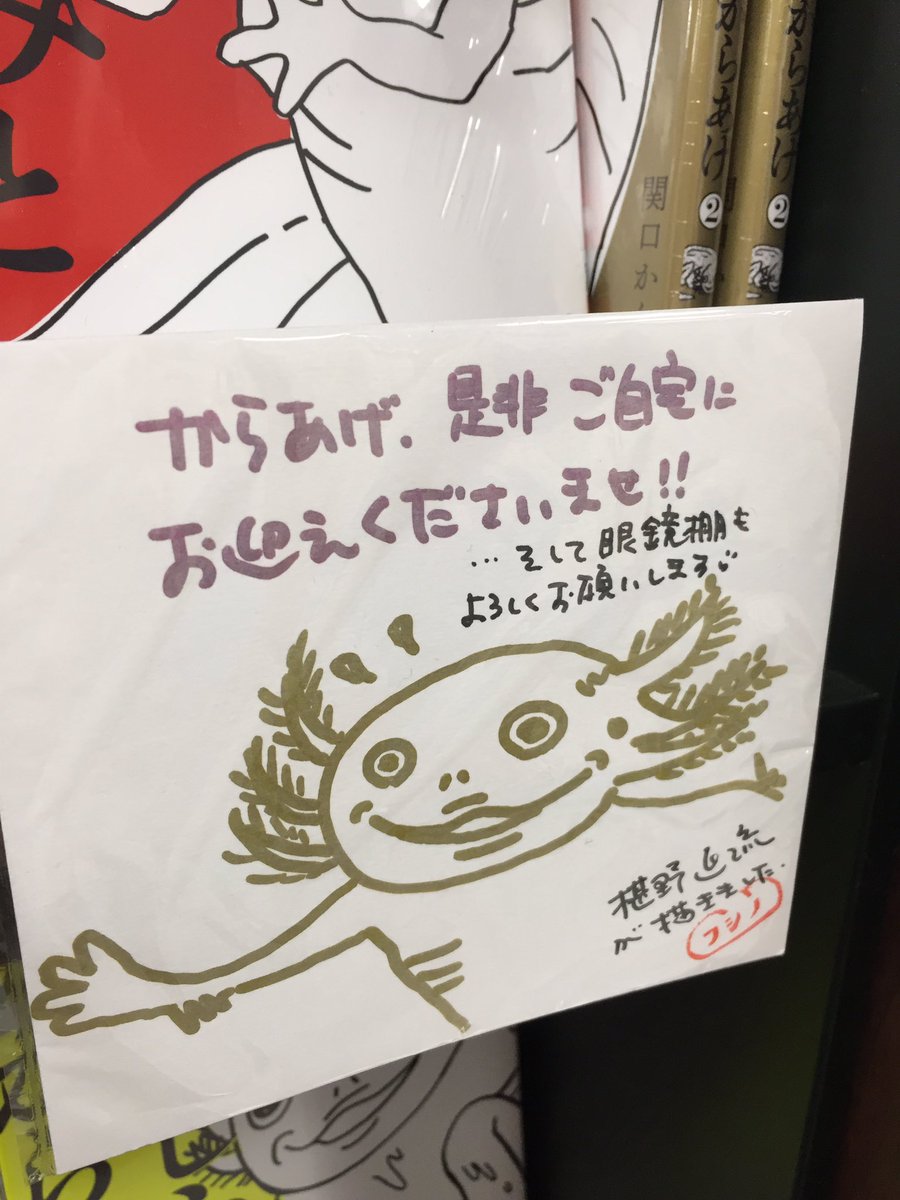 からあげ 2
からあげ 2
関口か
からあげ、是非ご自宅に
お迎えくださいませ!!
…そして眼鏡棚も
よろしくお願いしまろ
が描きました。
フジノ